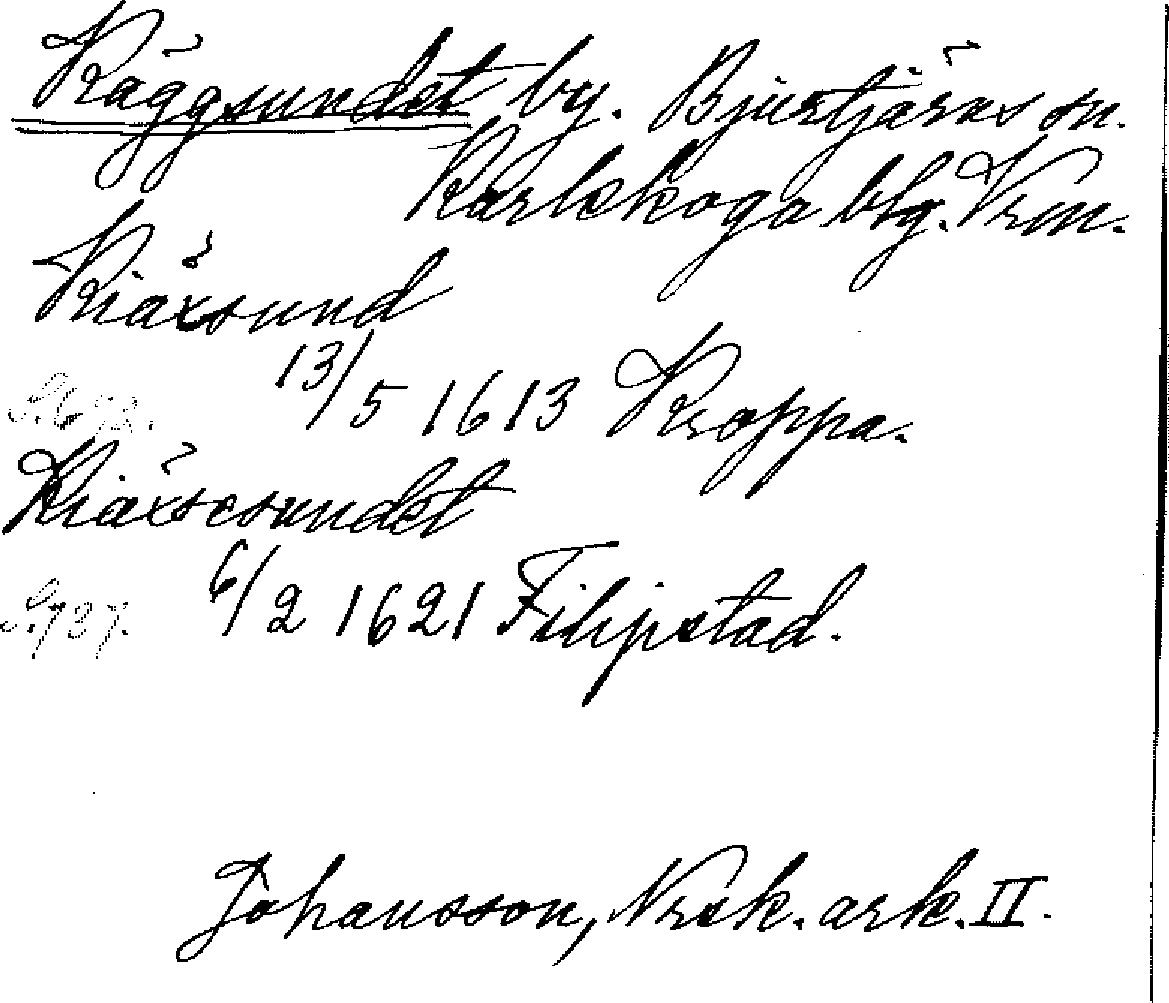 Käggsundet by. Bjurtjärns sn.
Karlskoga blg. Vrm.
Kiäxsund
13/5 1613 Kroppa.
Kiäxsesundet
S. 737. 6/2 1621 Filipstad.
Johansson, Nrsk. ark. II.